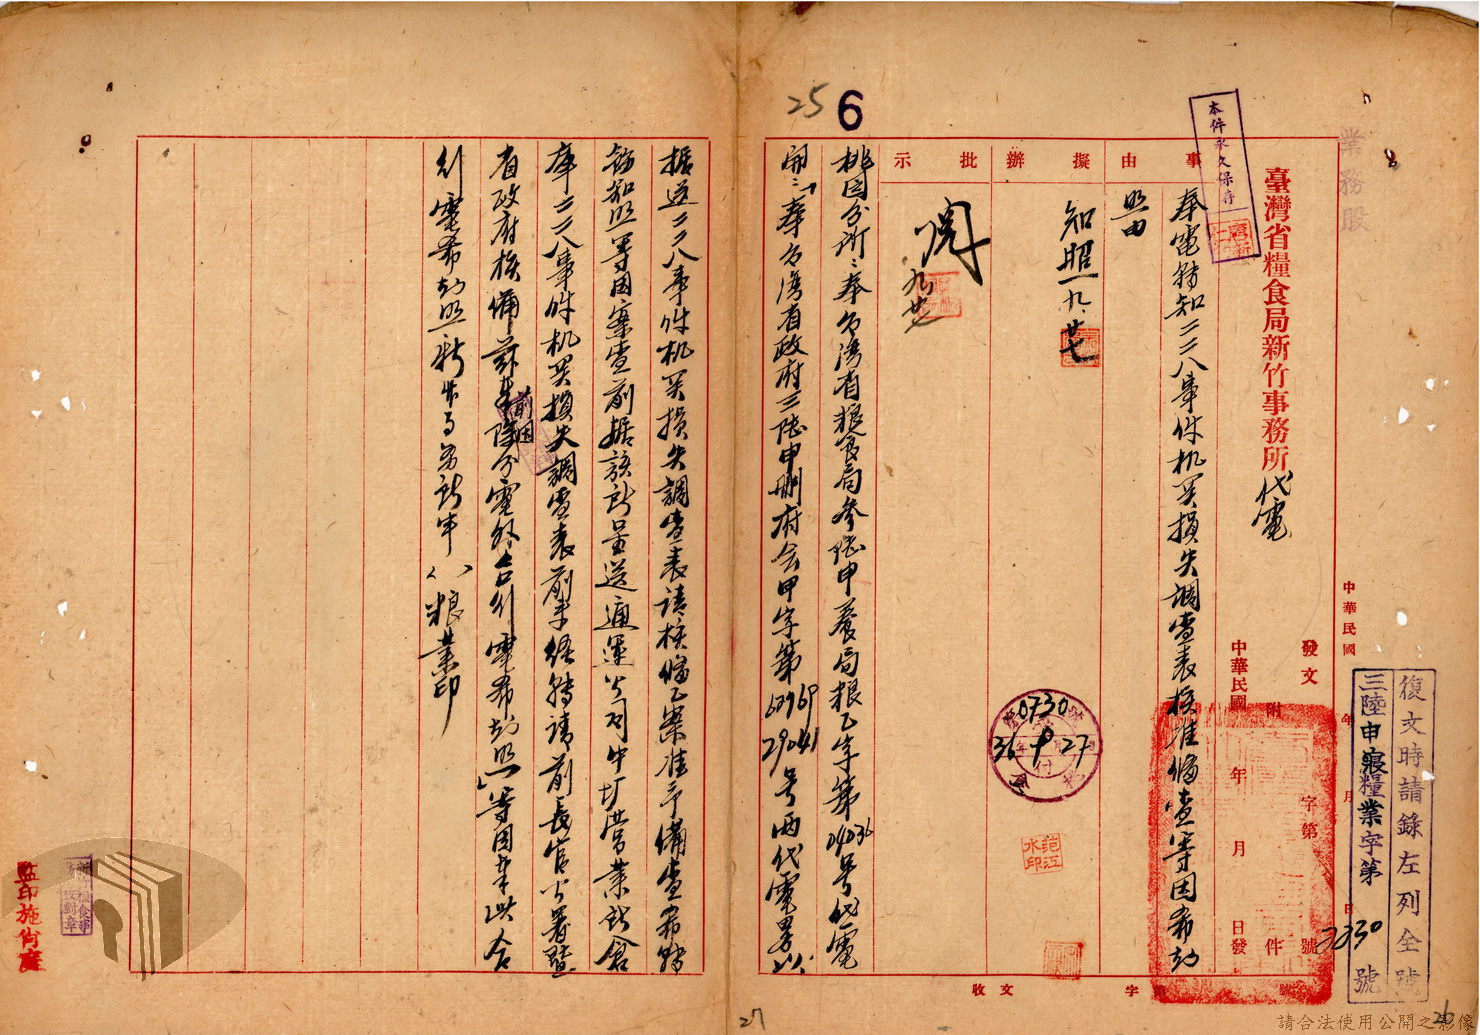 25
6
業務股
本件永久保存
臺灣省糧食局新竹事務所代電
中華民國 年 月 日
復文時請錄左列全號
三陸申寢糧業字第2330號
發文 字第 號
附 件
中華民國 年 月 日發
事由
奉電轉知二二八事件机关損失調查表核准俻查等因希知
照由
擬辦
知照 九、廿七
批示
0730
36 9 27
范江水印
收文 字 號
桃园分所：奉台湾省粮食局參陸申養局粮乙字第04036号代電
開：「奉台湾省政府三陸申刪府会甲字第
62969
29041
号兩代電畧以
据送二二八事件机关損失調查表請核俻乙案准予備查希轉
飭知照等因案查前据該所呈送通運公司中圻營業所倉
庫二二八事件机关損失調查表前來經轉請前長官公署暨
省政府核備
前因
除分電外合行電希知照」等因奉此合
行電希知照新竹事务所申 粮業印
監印施
27
請合法使用公開之影像